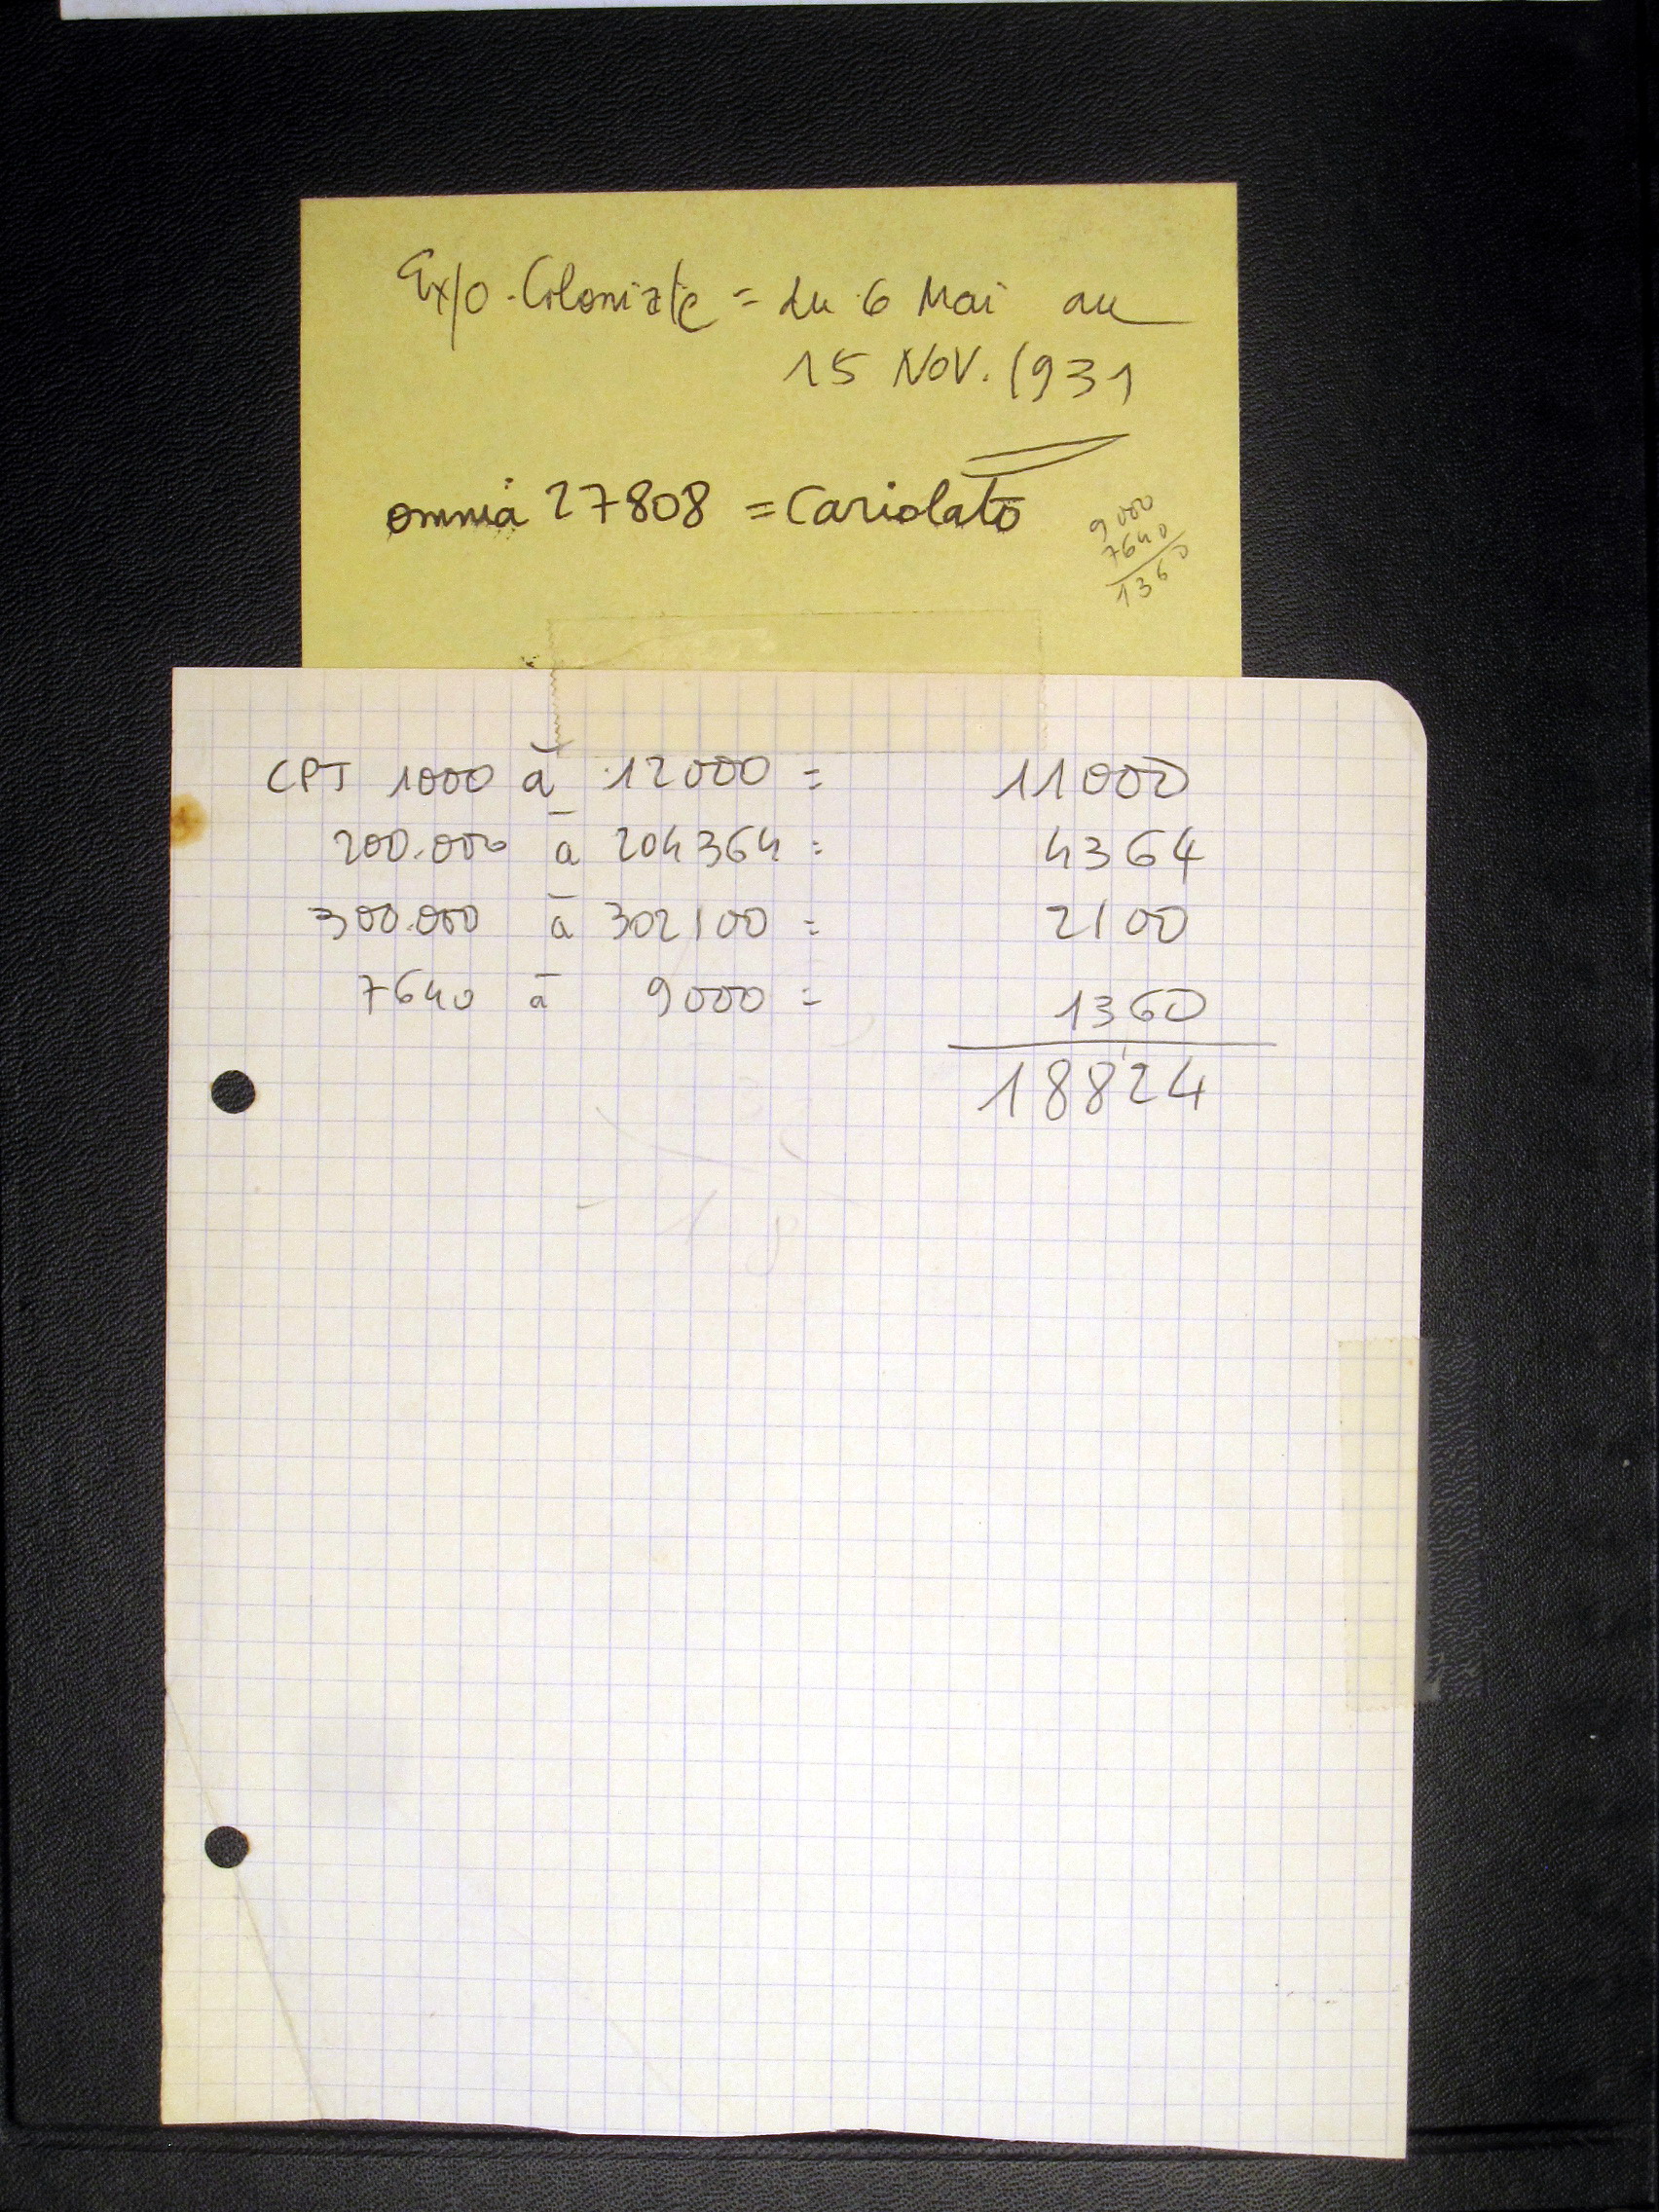 Expo. Coloniale = du 6 Mai au
15 NOV. 1931
omnia 27808 = Cariolato
9000
7640
1360
CPT 1000 à 12000 = 11000
200.000 à 204364 = 4364
300.000 à 302100 = 2100
7640 à 9000 = 1360
18824